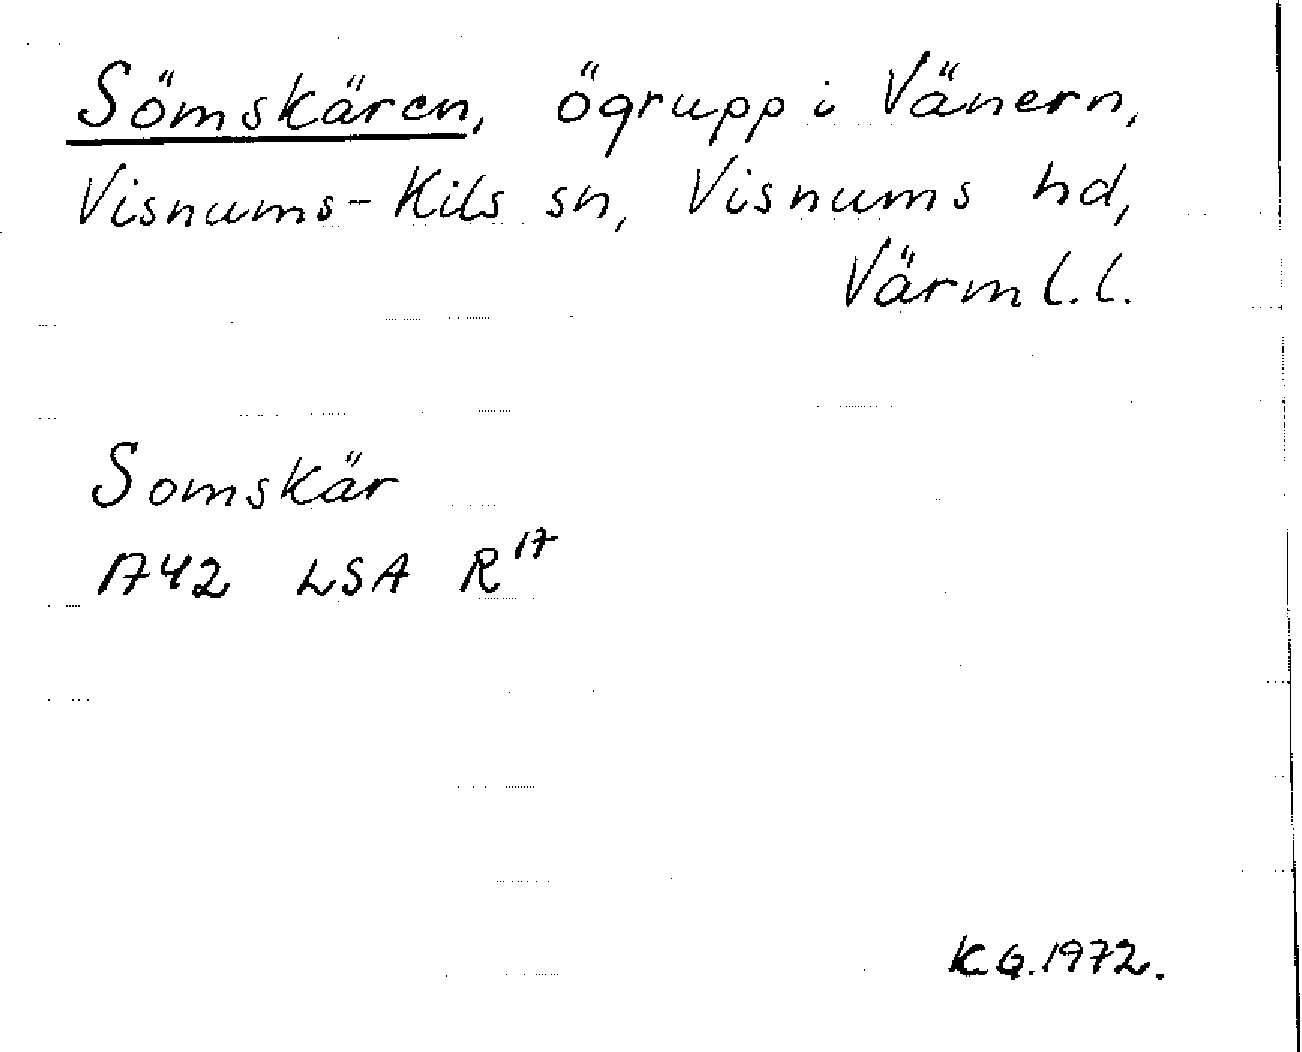 Sömskären, ögrupp i Vänern,
Visnums-Kils sn, Visnums hd,
Värml. l.
Somskär
1742 LSA R¹⁷
K.G. 1972.